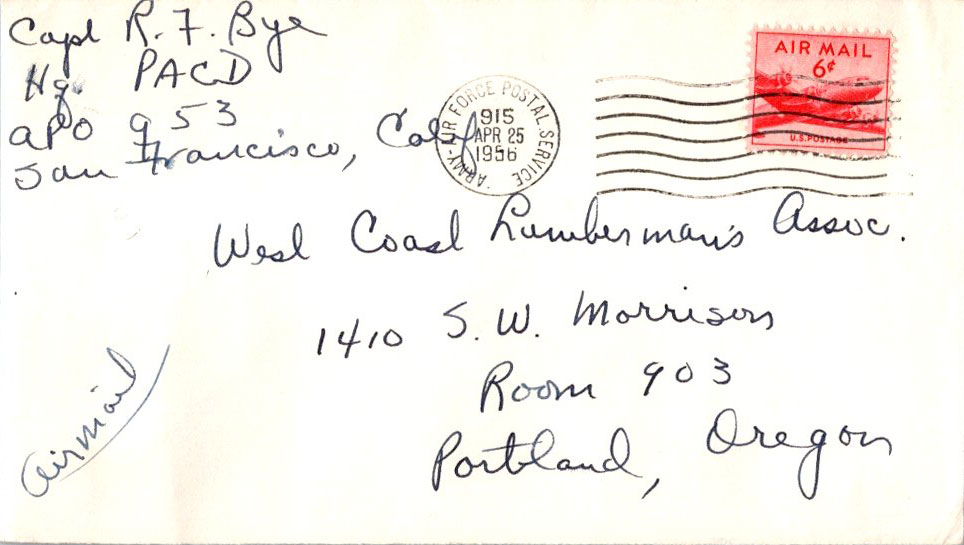 Capt R. F. Bye
Hq. PACD
APO 953
San Francisco, Calif
ARMY-AIR FORCE POSTAL SERVICE
915
APR 25
1956
AIR MAIL
6¢
U.S. POSTAGE
West Coast Lumberman's Assoc.
1410 S. W. Morrison
Room 903
Portland, Oregon
airmail